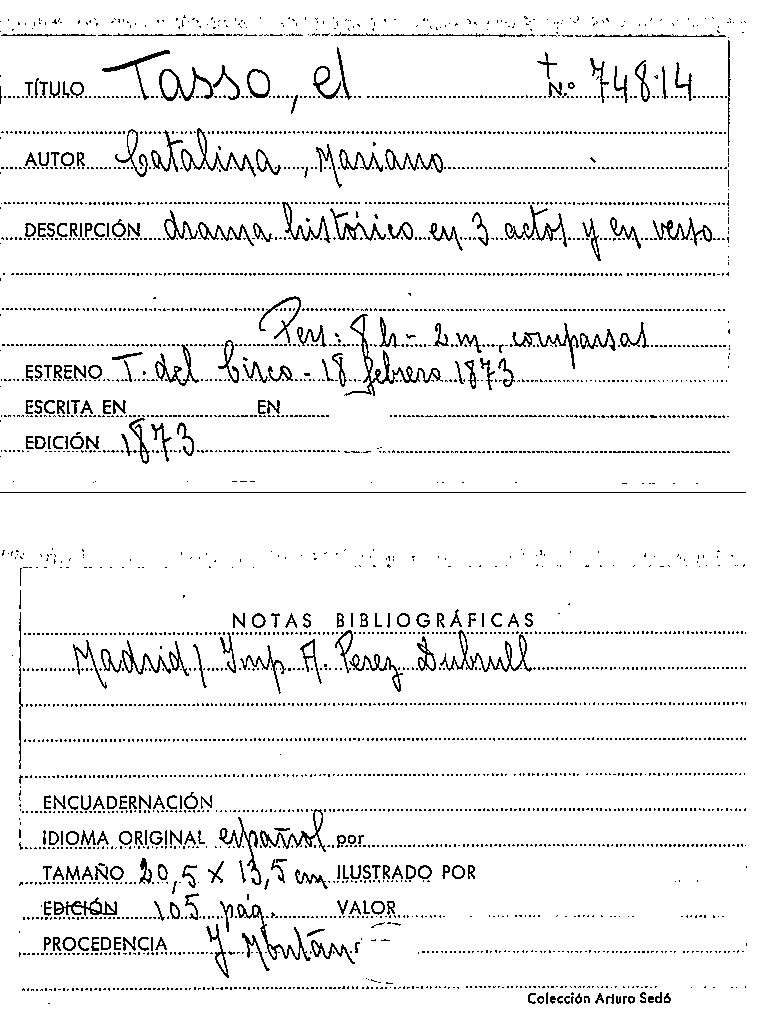 TÍTULO Tasso, el + N.º 74814
AUTOR Catalina, Mariano
DESCRIPCIÓN drama histórico en 3 actos y en verso
Pers: 8 h - 2 m, comparsas
ESTRENO T. del Circo - 18 febrero 1873
ESCRITA EN EN
EDICIÓN 1873
NOTAS BIBLIOGRÁFICAS
Madrid / Imp A. Perez Dubrull
ENCUADERNACIÓN
IDIOMA ORIGINAL español por
TAMAÑO 20,5 x 13,5 cm ILUSTRADO POR
EDICIÓN 105 pág. VALOR
PROCEDENCIA J. Montán
Colección Arturo Sedó